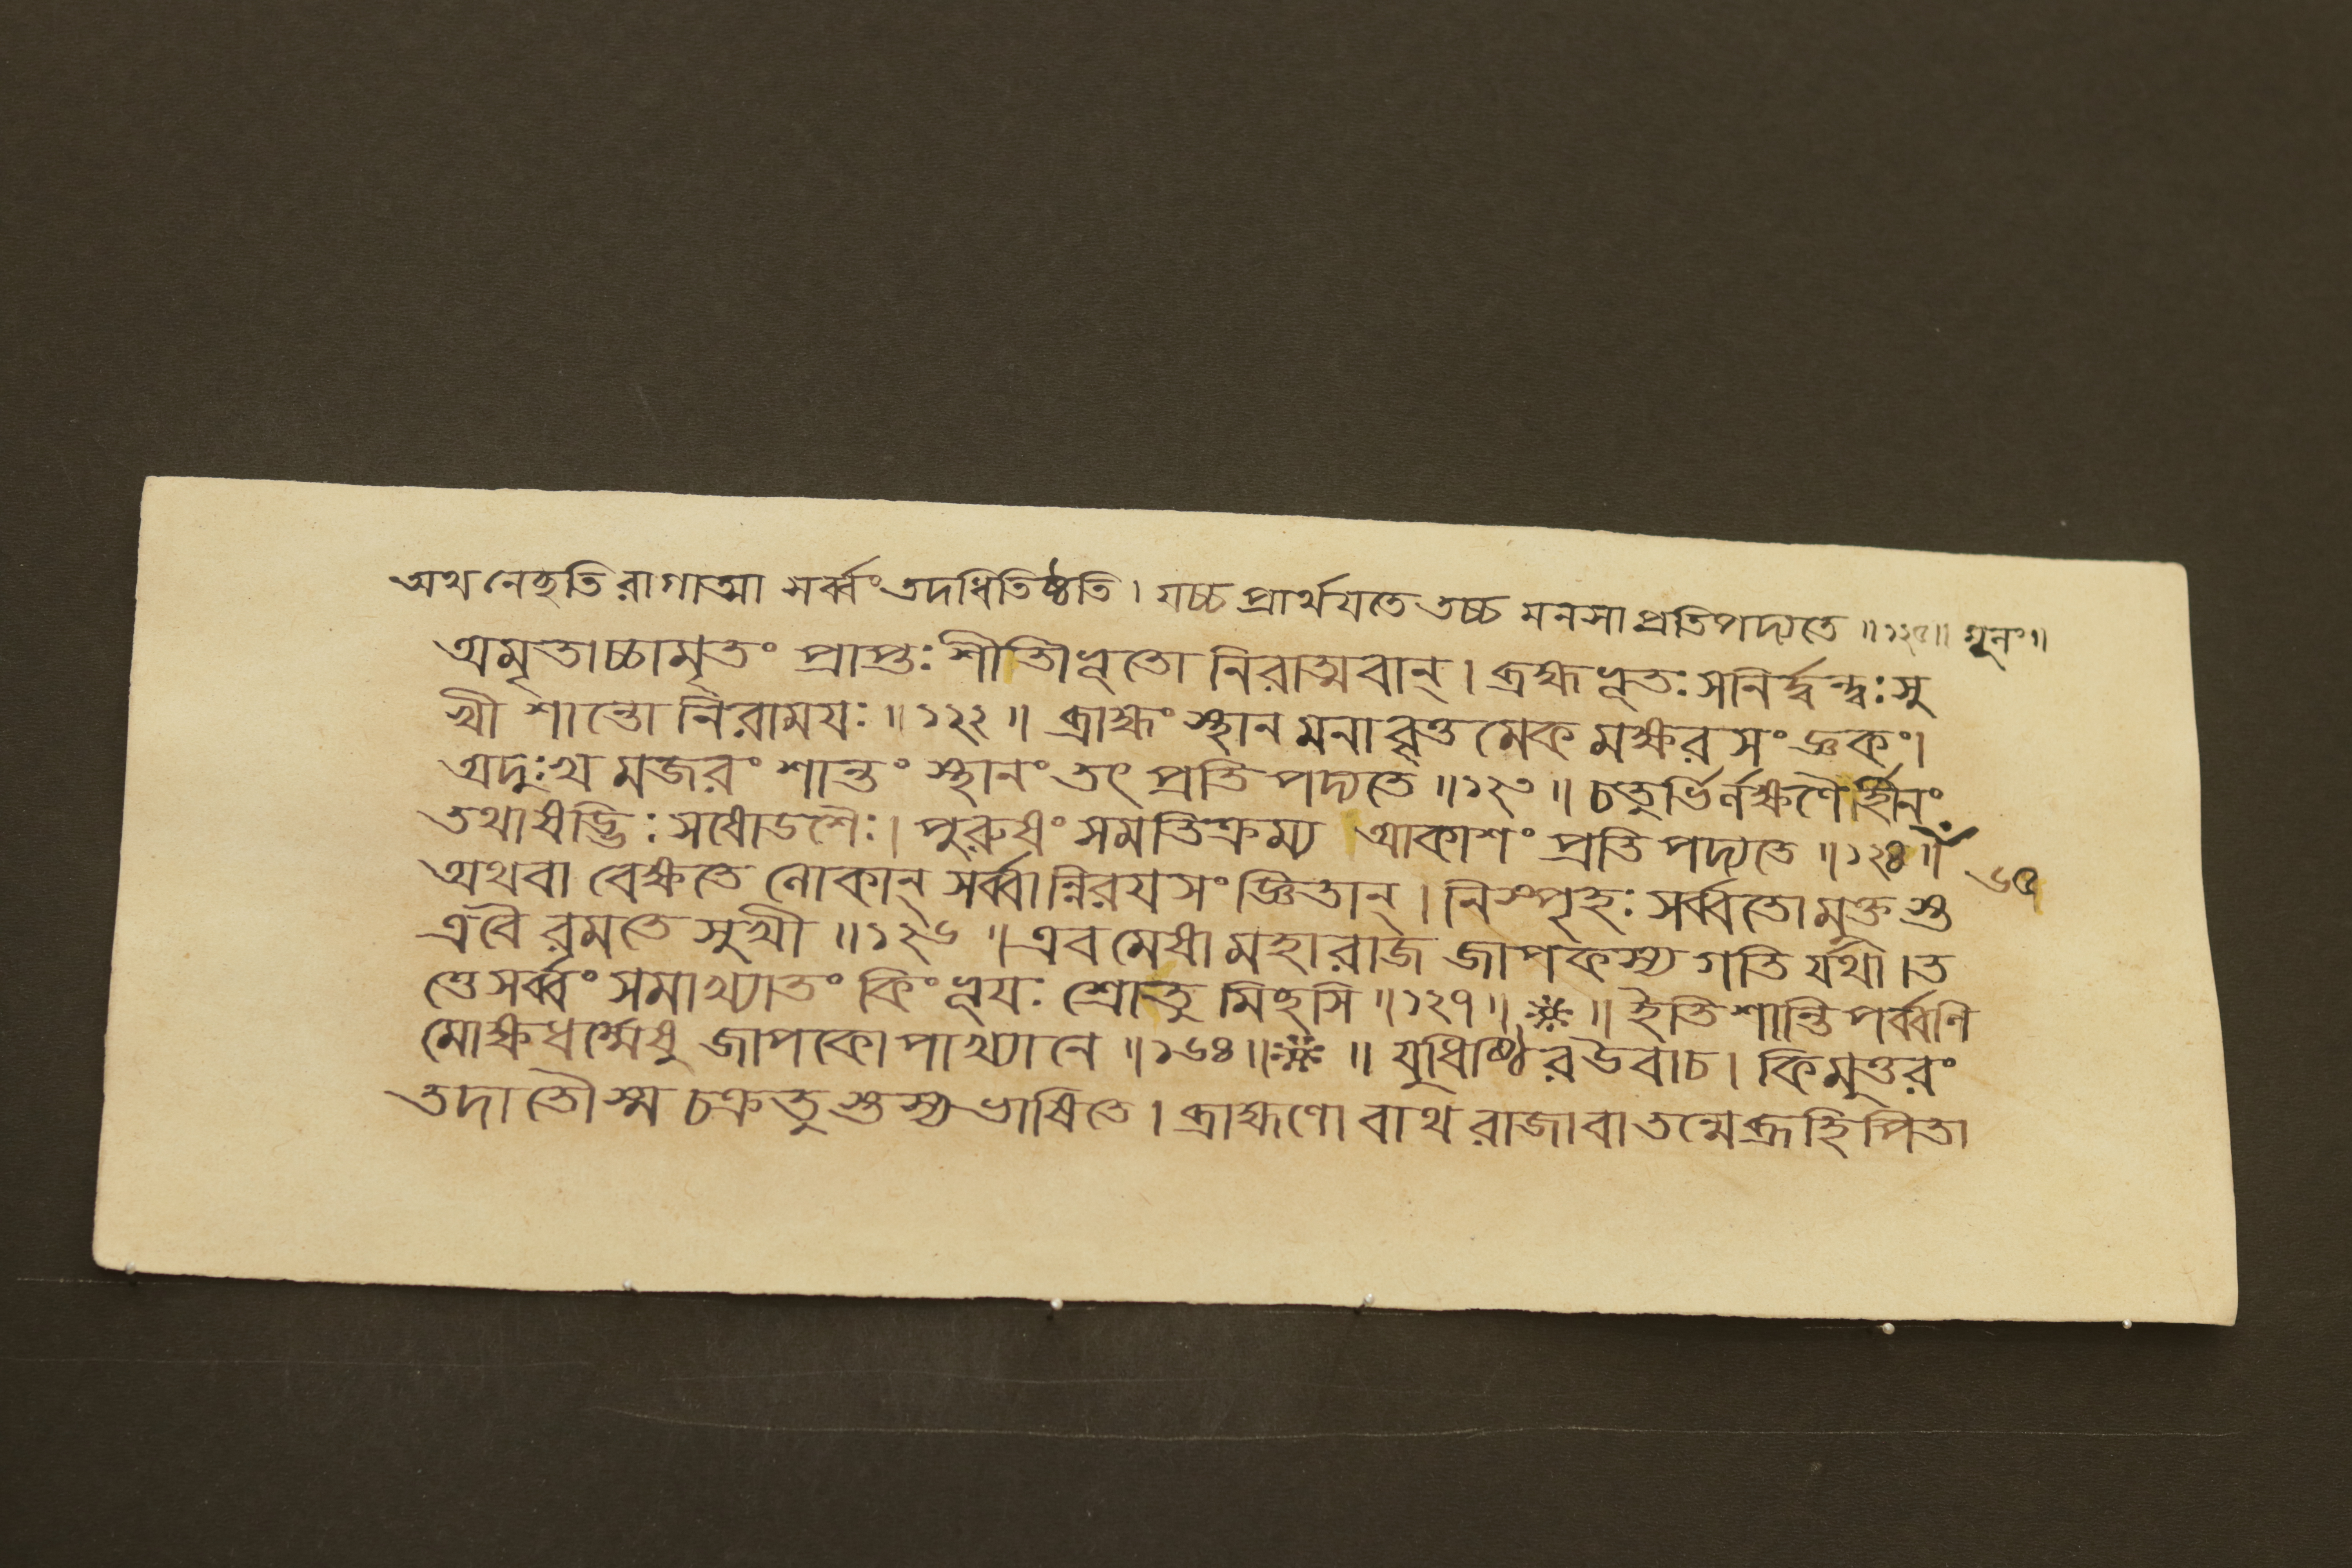 অথ নেচ্ছতি রাগাত্মা সর্ব্বং তদধিতিষ্ঠতি। যচ্চ প্রার্থযতে তচ্চ মনসা প্রতিপদ্যতে ॥১২৫॥ মূনং॥
অমৃতাচ্চামৃতং প্রাপ্তঃ শীতীভূতো নিরাত্মবান্। ব্রহ্মভূতঃ সনির্দ্বন্দ্বঃ সু
খী শান্তো নিরাময়ঃ ॥১২২॥ ব্রাহ্মং স্থানমনাবৃত্তমেকমক্ষরসংজ্ঞকং।
অদুঃখমজরং শান্তং স্থানং তৎ প্রতিপদ্যতে ॥১২৩॥ চতুর্ভির্লক্ষণৈর্হীনং
তথাষড্ভিঃ সষোডশৈঃ। পুরুষং সমতিক্রম্য আকাশং প্রতিপদ্যতে ॥১২৪॥
অথবা বেক্ষতে লোকান্ সর্ব্বান্নিরযসংজ্ঞিতান্। নিস্পৃহঃ সর্ব্বতোমুক্তস্ত ৬৫
এবৈ রমতে সুখী ॥১২৬॥ এবমেষা মহারাজ জাপকস্য গতি র্যথা। ত
ত্তে সর্ব্বং সমাখ্যাতং কিং ভূযঃ শ্রোতুমিচ্ছসি ॥১২৭॥ ॥ ইতি শান্তিপর্ব্বণি
মোক্ষধর্ম্মেষু জাপকোপাখ্যানে ॥১৬৪॥ ॥ যুধিষ্ঠির উবাচ। কিমুত্তরং
তদা তৌ স্ম চক্রতুস্তস্য ভাষিতে। ব্রাহ্মণো বাথ রাজা বা তন্মে ব্রূহি পিতা